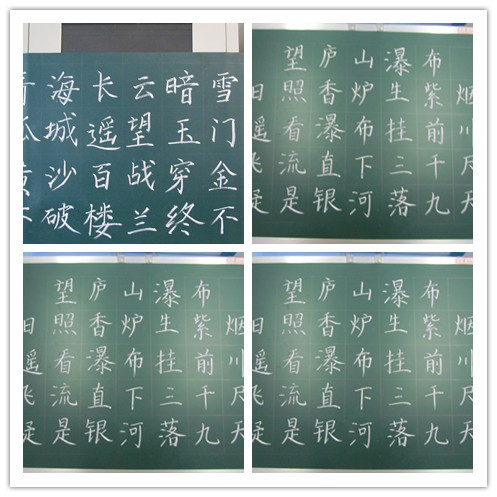 海长云暗雪
城遥望玉门
沙百战穿金
破楼兰终不
望庐山瀑布
日照香炉生紫烟
遥看瀑布挂前川
飞流直下三千尺
疑是银河落九天
望庐山瀑布
日照香炉生紫烟
遥看瀑布挂前川
飞流直下三千尺
疑是银河落九天
望庐山瀑布
日照香炉生紫烟
遥看瀑布挂前川
飞流直下三千尺
疑是银河落九天